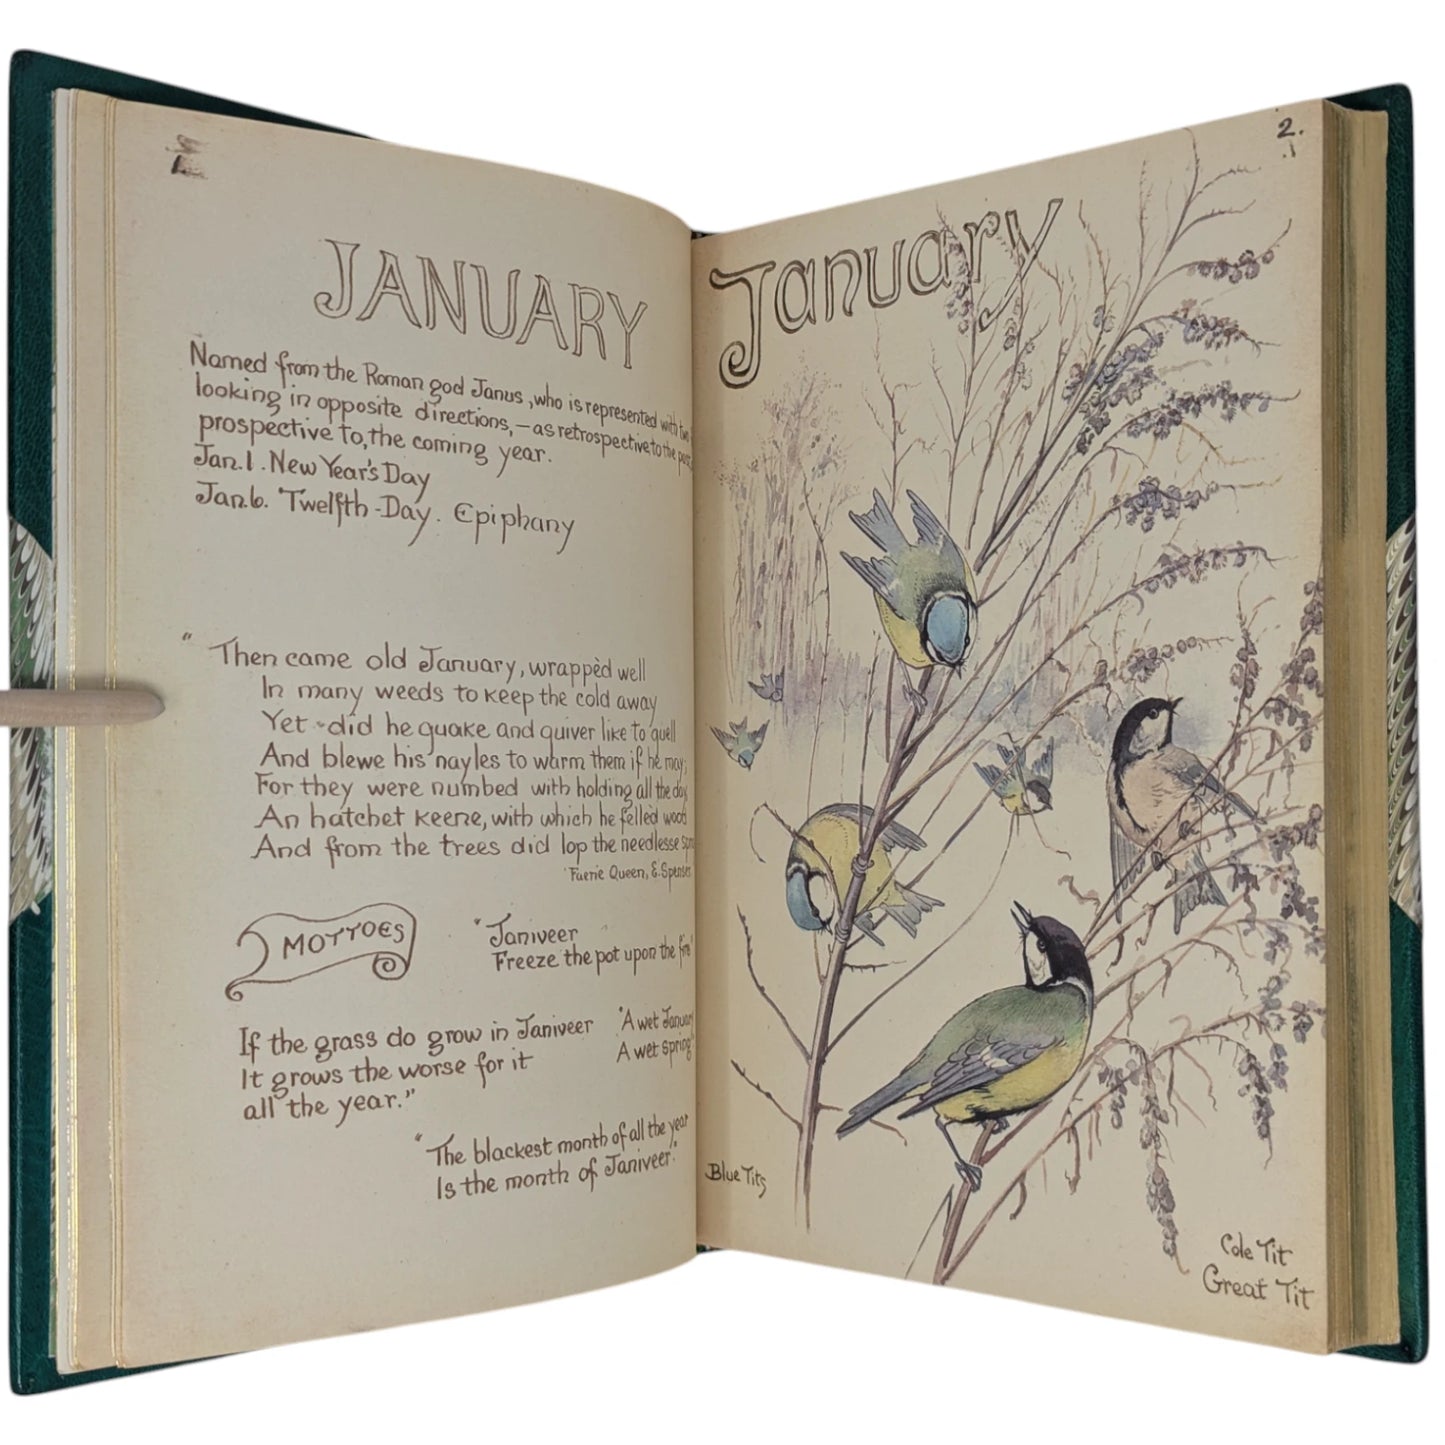 JANUARY
Named from the Roman god Janus, who is represented with two
looking in opposite directions, — as retrospective to the past,
prospective to, the coming year.
Jan. 1. New Year's Day
Jan. 6. Twelfth-Day. Epiphany
" Then came old January, wrappèd well
In many weeds to keep the cold away
Yet did he quake and quiver like to quell
And blewe his nayles to warm them if he may;
For they were numbed with holding all the day
An hatchet keene, with which he fellèd wood
And from the trees did lop the needlesse
Faerie Queen, E. Spenser
MOTTOES
"Janiveer
Freeze the pot upon the fire"
If the grass do grow in Janiveer
It grows the worse for it
all the year."
"A wet January
A wet Spring"
"The blackest month of all the year
Is the month of Janiveer."
2.
January
Blue Tits
Cole Tit
Great Tit